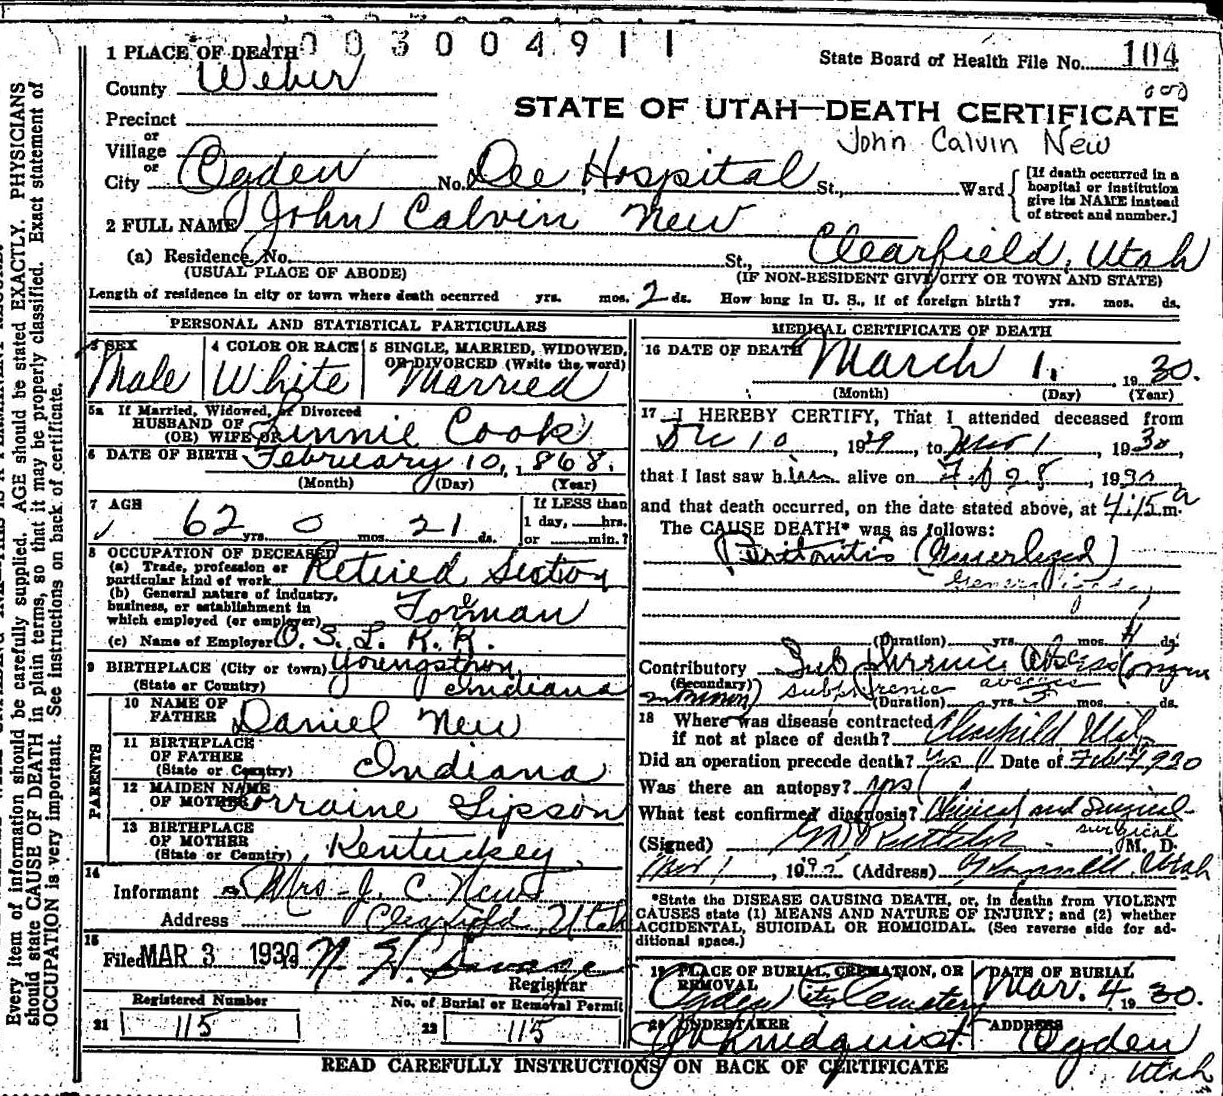 1003004911
1 PLACE OF DEATH
State Board of Health File No. 104
County Weber
STATE OF UTAH—DEATH CERTIFICATE
Precinct
John Calvin New
or
Village
or
City Ogden No. Dee Hospital St., Ward
[If death occurred in a hospital or institution give its NAME instead of street and number.]
2 FULL NAME John Calvin New
(a) Residence, No. St., Clearfield, Utah
(USUAL PLACE OF ABODE) (IF NON-RESIDENT GIVE CITY OR TOWN AND STATE)
Length of residence in city or town where death occurred yrs. mos. 2 ds. How long in U. S., if of foreign birth? yrs. mos. ds.
PERSONAL AND STATISTICAL PARTICULARS
3 SEX 4 COLOR OR RACE 5 SINGLE, MARRIED, WIDOWED, OR DIVORCED (Write the word)
Male White Married
5a If Married, Widowed, or Divorced
HUSBAND OF
(OR) WIFE OF Linnie Cook
6 DATE OF BIRTH February 10, 1868.
(Month) (Day) (Year)
7 AGE If LESS than
62 yrs. 0 mos. 21 ds. 1 day, hrs.
or min.?
8 OCCUPATION OF DECEASED
(a) Trade, profession or
particular kind of work Retired Section
(b) General nature of industry,
business, or establishment in
which employed (or employer) Forman
(c) Name of Employer O. S. L. R. R.
9 BIRTHPLACE (City or town) Youngstown
(State or Country) Indiana
PARENTS
10 NAME OF
FATHER Daniel New
11 BIRTHPLACE
OF FATHER
(State or Country) Indiana
12 MAIDEN NAME
OF MOTHER Lorraine Sipson
13 BIRTHPLACE
OF MOTHER
(State or Country) Kentuckey
14
Informant Mrs J. C. New
Address Clearfield, Utah
15
Filed MAR 3 1930
Registrar
Registered Number No. of Burial or Removal Permit
21 115 22 115
MEDICAL CERTIFICATE OF DEATH
16 DATE OF DEATH March 1, 1930.
(Month) (Day) (Year)
17 I HEREBY CERTIFY, That I attended deceased from
Dec 10, 1929, to Mar 1, 1930,
that I last saw him alive on Feb 28, 1930
and that death occurred, on the date stated above, at 4:15 a m.
The CAUSE DEATH* was as follows:
Peritonitis (Generlized)
(Duration) yrs. mos. 4 ds.
Contributory Subphrenic abscess
(Secondary) subphrenic abscess
(Duration) yrs. mos. ds.
18 Where was disease contracted
if not at place of death? Clearfield Utah
Did an operation precede death? Yes Date of
Was there an autopsy? yes
What test confirmed diagnosis? Clinical and Surgical
surgical
(Signed) M. D.
Mar 1, 19 (Address) Utah
*State the DISEASE CAUSING DEATH, or, in deaths from VIOLENT
CAUSES state (1) MEANS AND NATURE OF INJURY; and (2) whether
ACCIDENTAL, SUICIDAL OR HOMICIDAL. (See reverse side for ad-
ditional space.)
19 PLACE OF BURIAL, CREMATION, OR REMOVAL DATE OF BURIAL
Ogden City Cemetery Mar. 4 1930.
20 UNDERTAKER ADDRESS
Ogden
Utah
READ CAREFULLY INSTRUCTIONS ON BACK OF CERTIFICATE
Every item of information should be carefully supplied. AGE should be stated EXACTLY. PHYSICIANS
should state CAUSE OF DEATH in plain terms, so that it may be properly classified. Exact statement of
OCCUPATION is very important. See instructions on back of certificate.